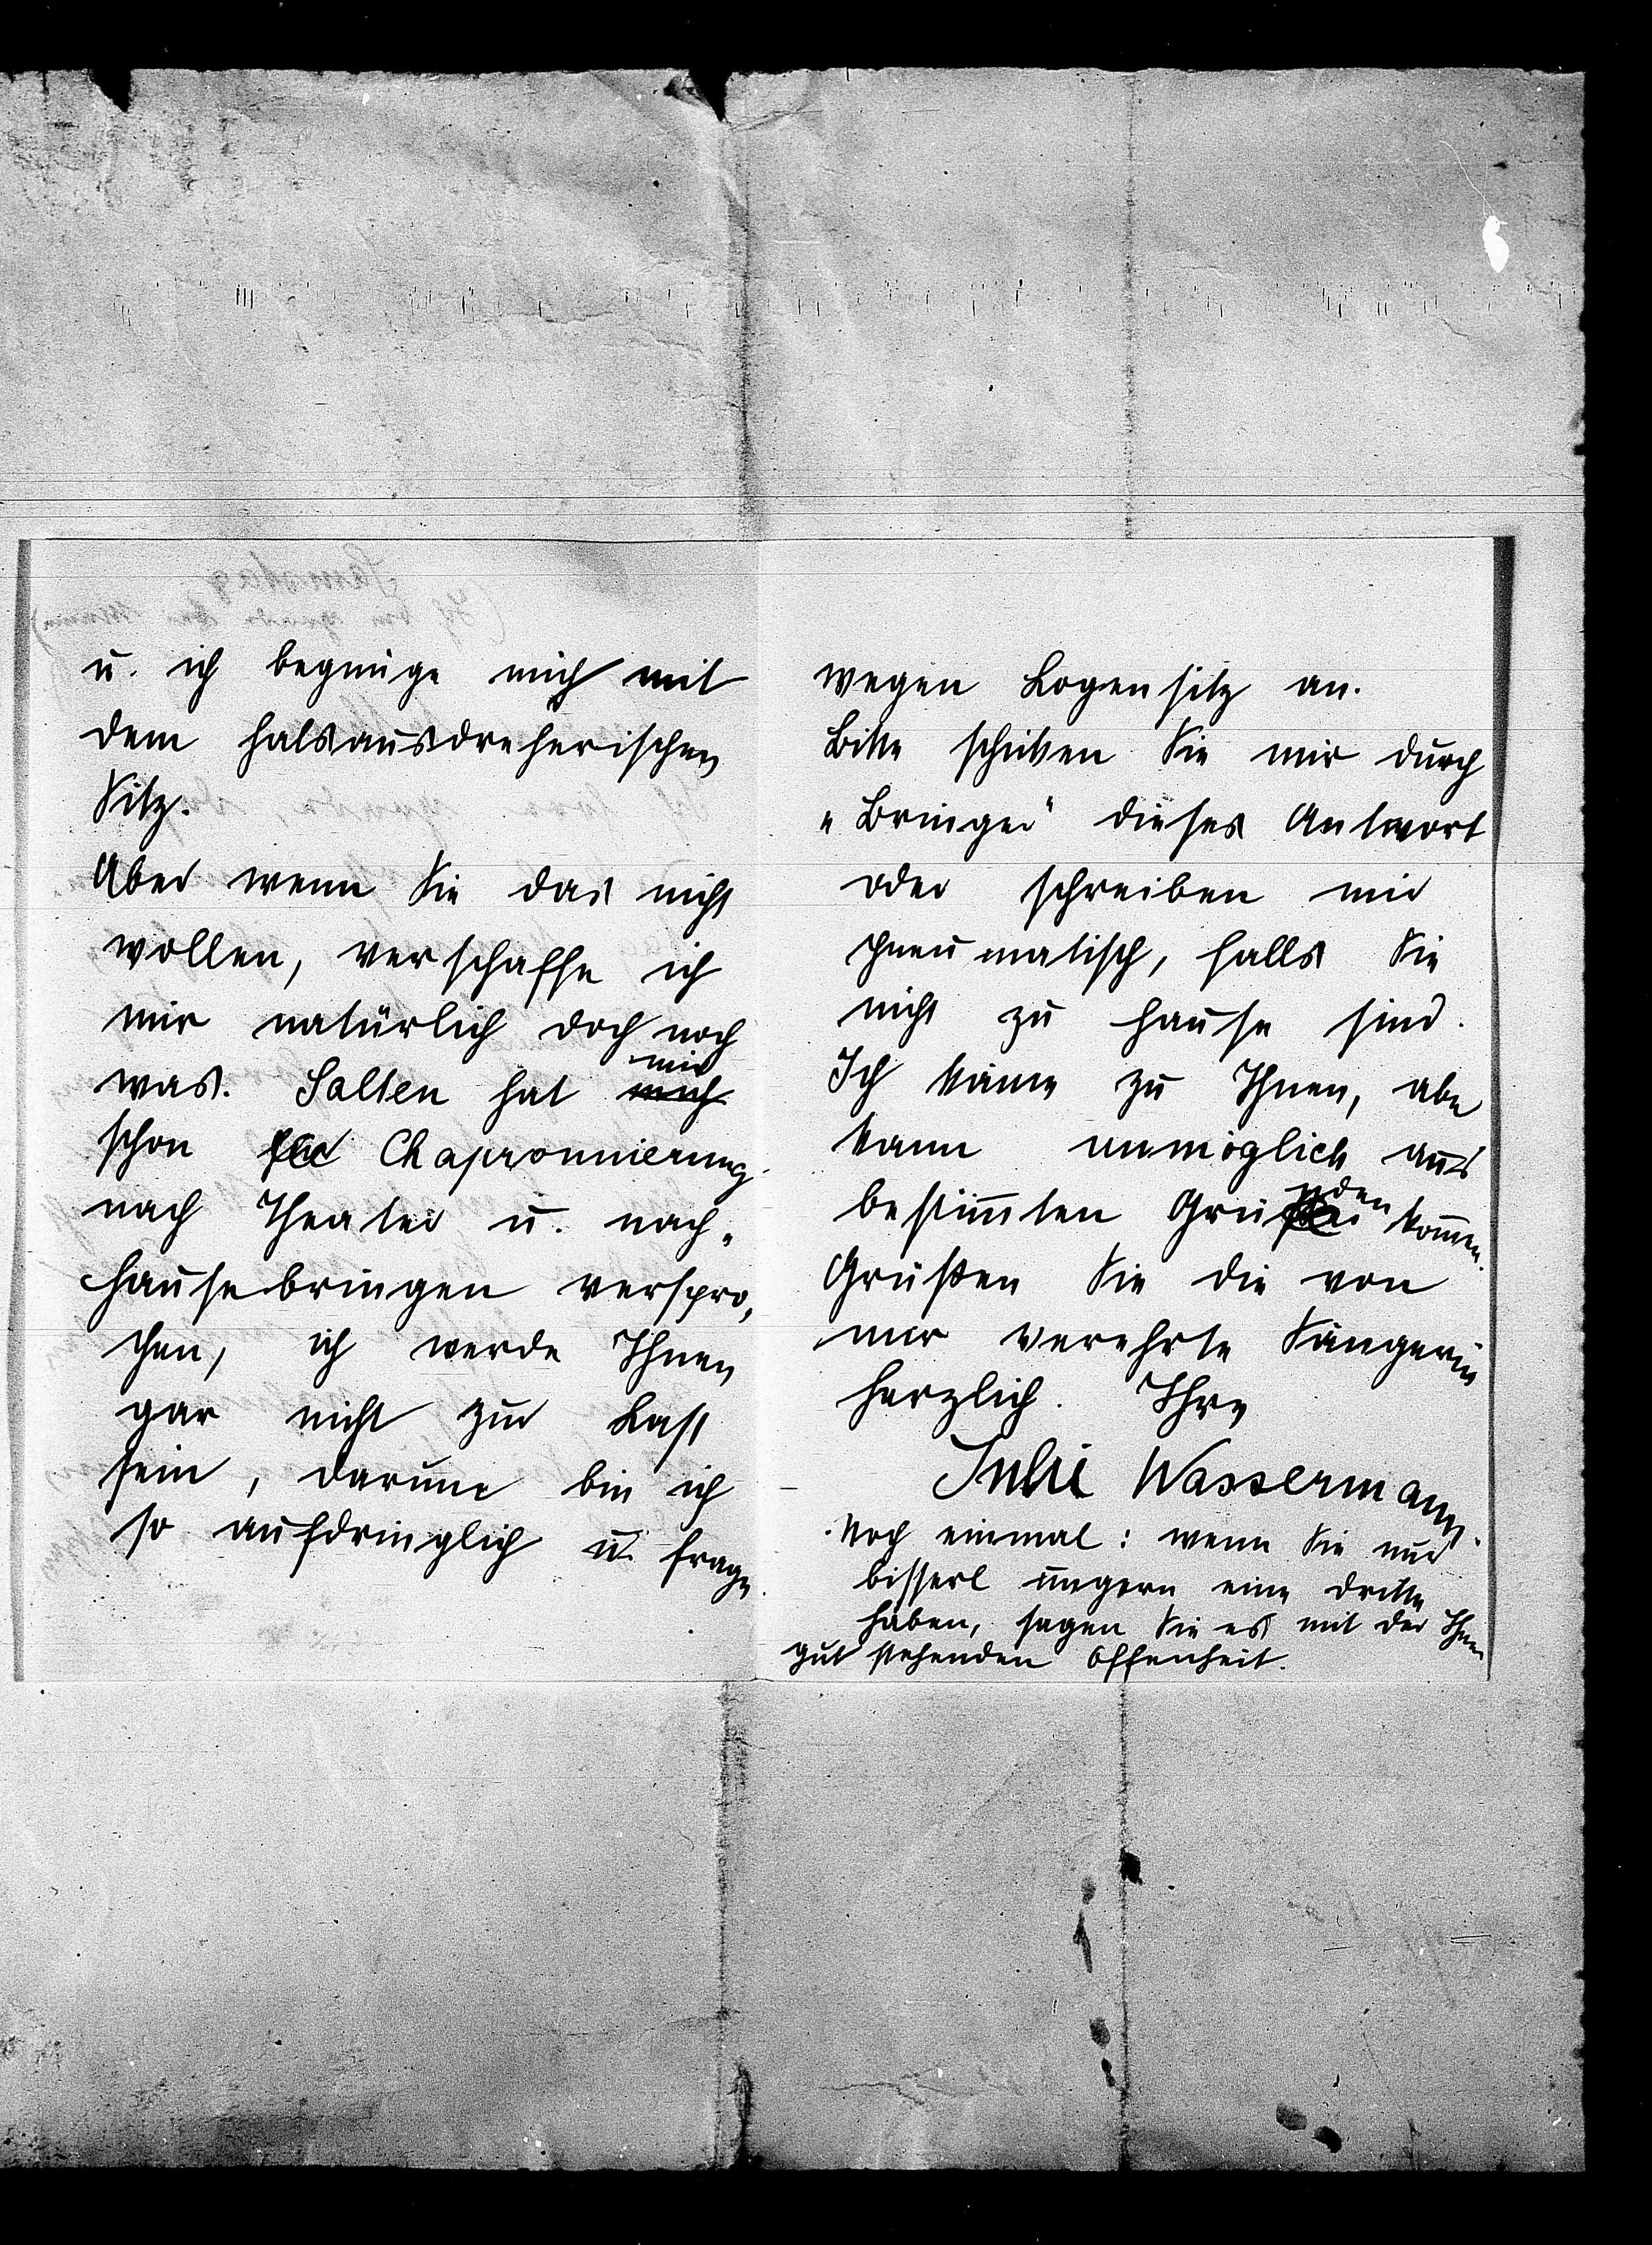 u. ich begnüge mich mit
dem halsausdreherischen
Sitz.
Aber wenn Sie das nicht
wollen, verschaffe ich
mir natürlich doch noch
mir
was. Salten hat mich
schon Chapronnierung
nach Theater u. nach„
hausebringen verspro„
chen, ich werde Ihnen
gar nicht zur Last
sein, darum bin ich
so aufdringlich u. frage
wegen Logensitz an.
Bitte schicken Sie mir durch
„Bringer" dieses Antwort
oder schreiben mir
pneumatisch, falls Sie
nicht zu hause sind.
Ich käme zu Ihnen, aber
kann unmöglich aus
bestim̄ten Gründen kom̄en.
Grüßen Sie die von
mir verehrte Sängerin
herzlich. Ihre
Julie Wassermann.
Noch einmal: wenn Sie nur
bisserl ungern eine dritte
haben, sagen Sie es mit der Ihnen
gut stehenden Offenheit.